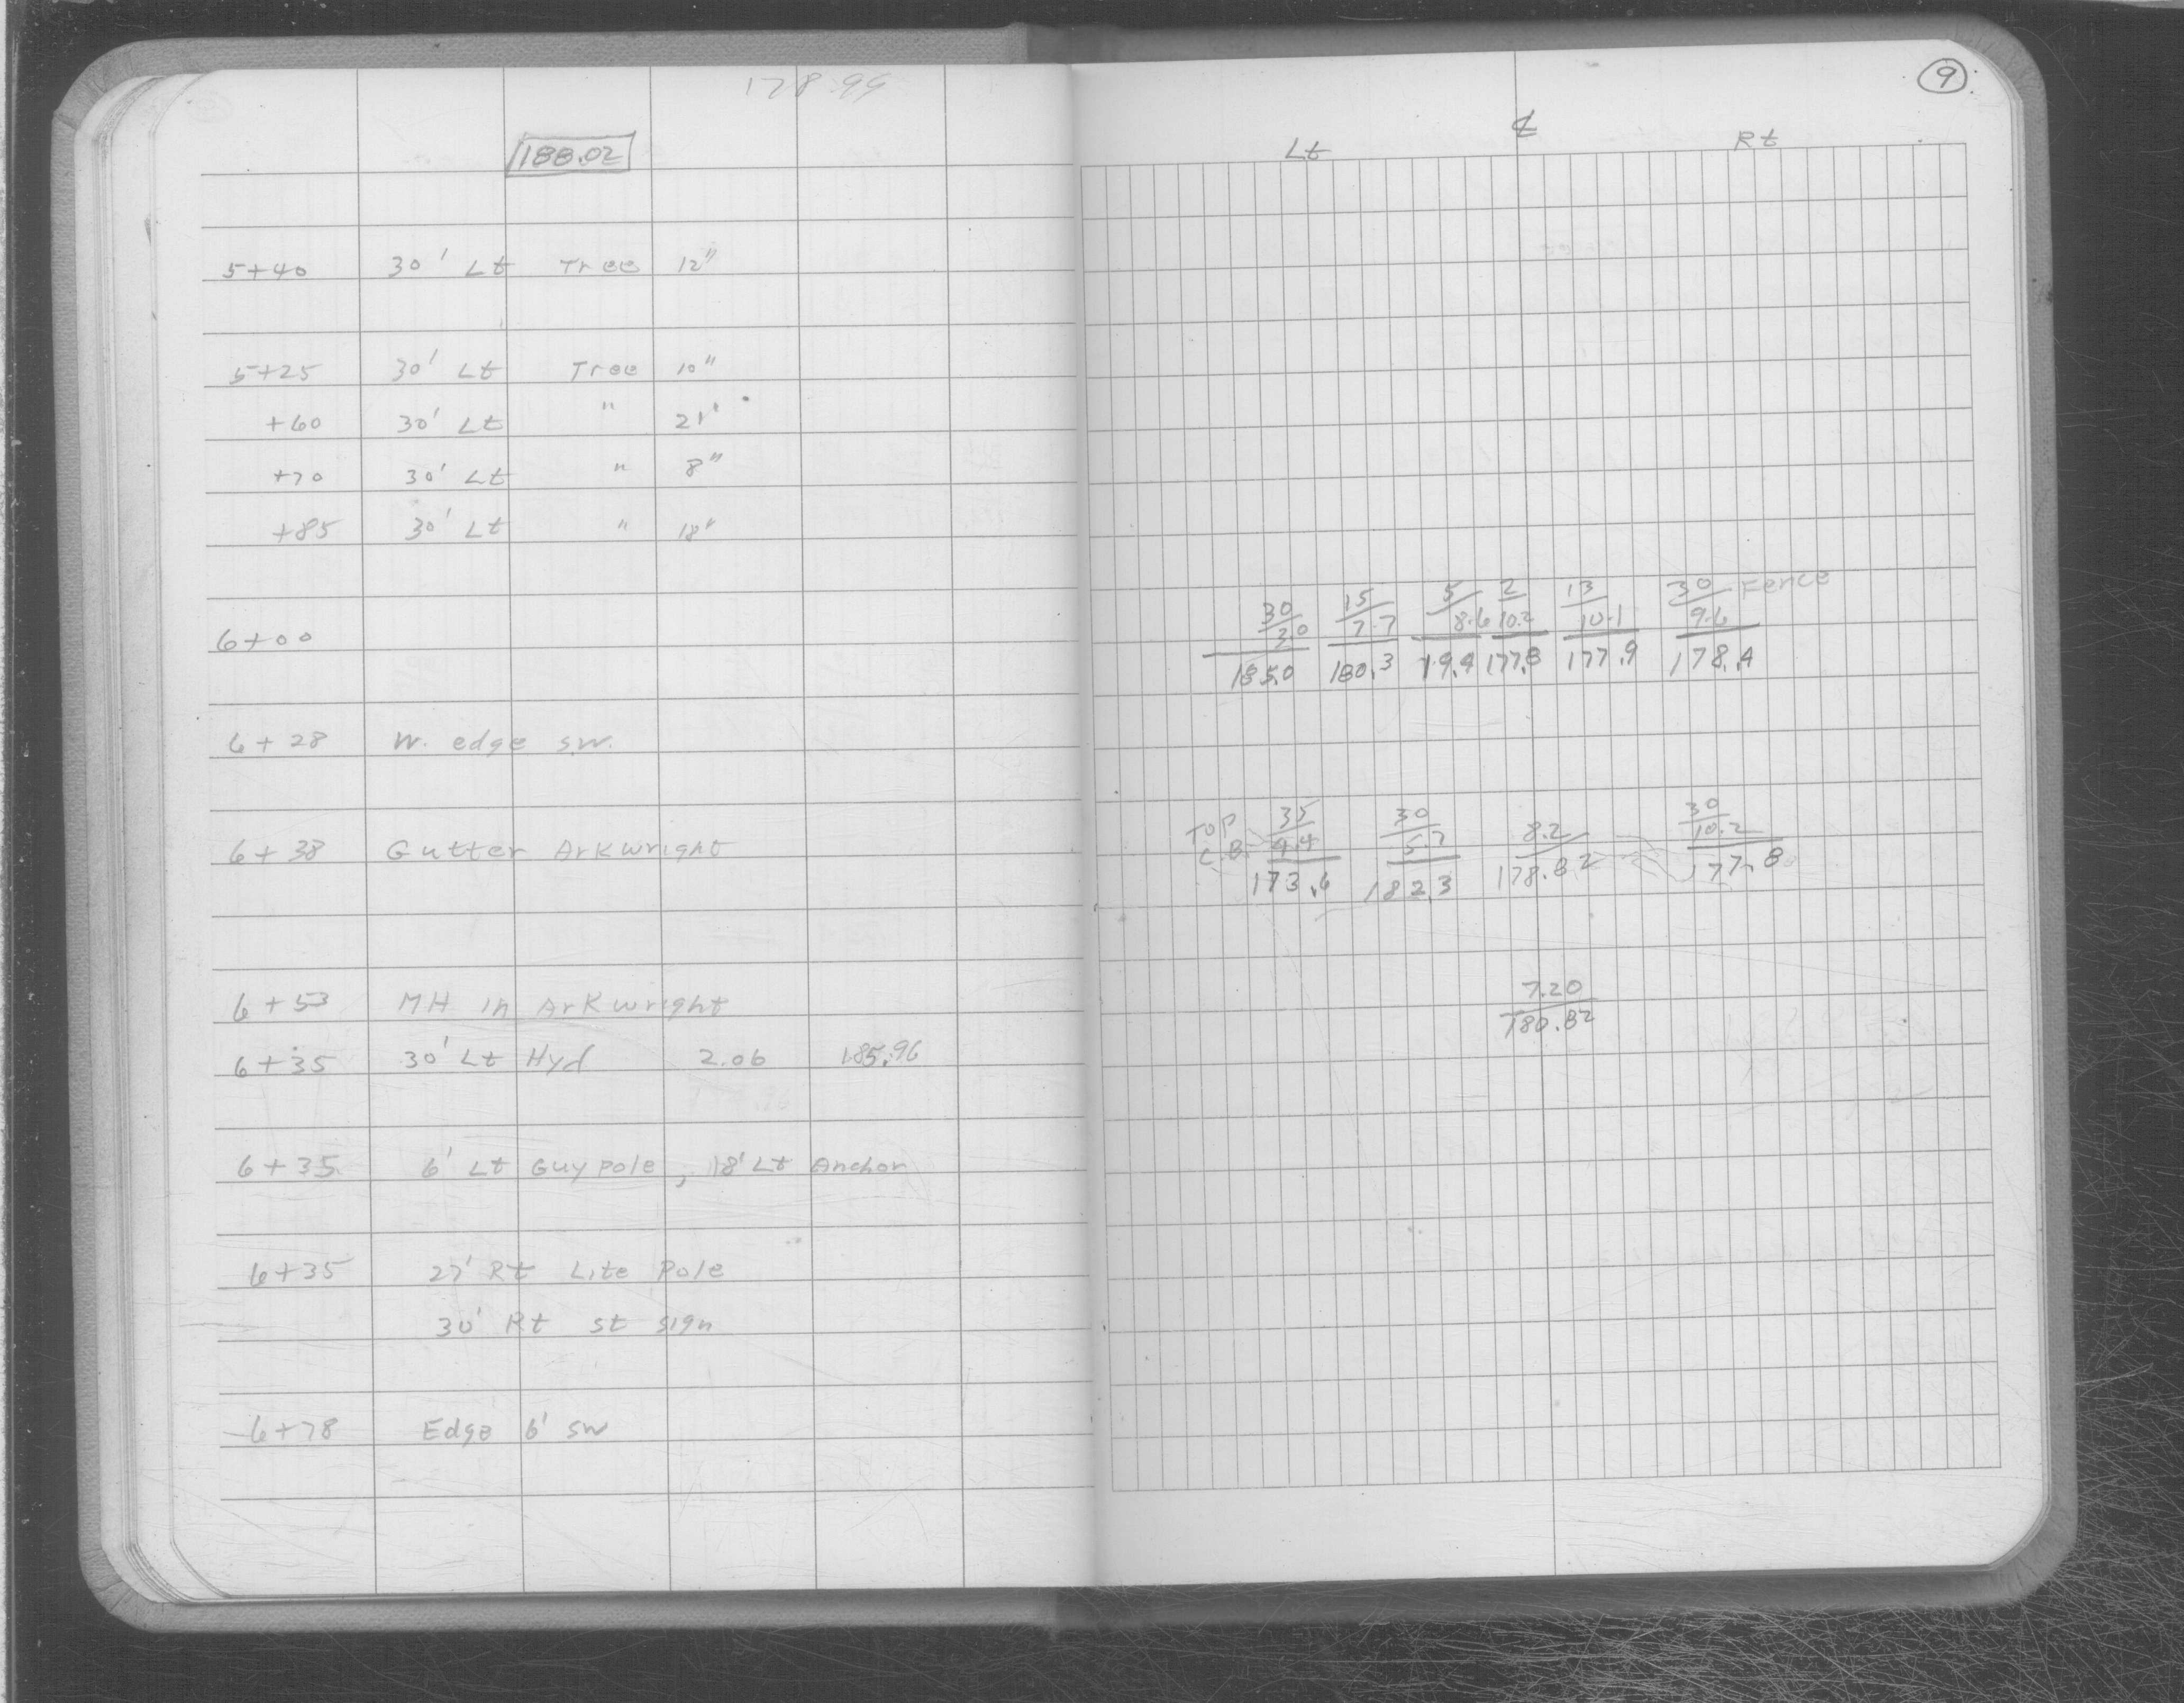 178.99
188.02
5+40 30' Lt Tree 12"
5+25 30' Lt Tree 10"
+60 30' Lt " 21"
+70 30' Lt " 8"
+85 30' Lt " 18"
6+00
6+28 W. edge sw.
6+38 Gutter Arkwright
6+53 MH in Arkwright
6+35 30' Lt Hyd 2.06 185.96
6+35 6' Lt Guy pole, 18' Lt Anchor
6+35 27' Rt Lite Pole
30' Rt st sign
6+78 Edge 6' sw
9
Lt ℄ Rt
30 15 5 2 13 30 Fence
3.0 7.7 8.6 10.2 10.1 9.6
185.0 180.3 19.4 177.8 177.9 178.4
Top 35 30 8.2 30
C.B. 4.4 5.7 10.2
173.6 182.3 178.82 177.8
7.20
180.82